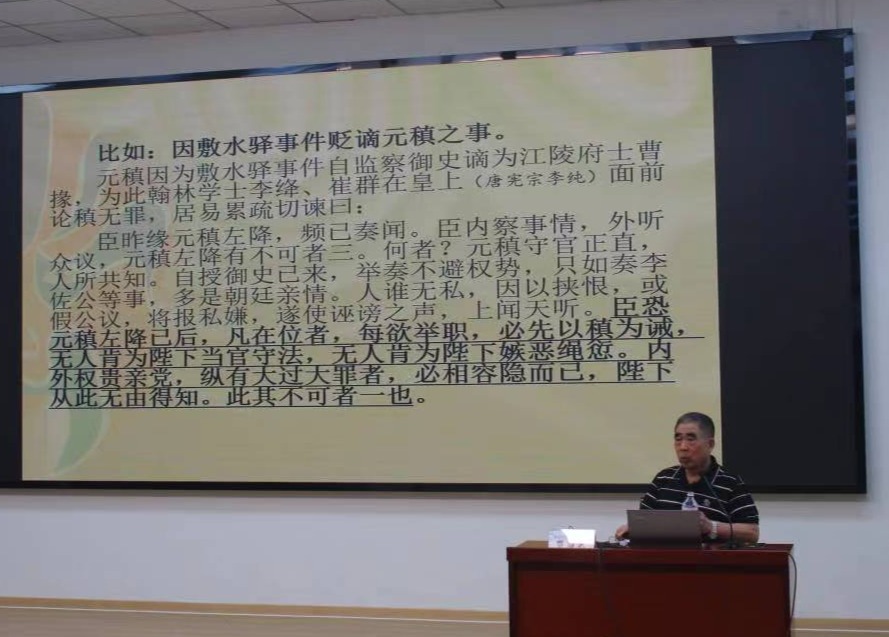 比如：因敷水驿事件贬谪元稹之事。
元稹因为敷水驿事件自监察御史谪为江陵府士曹
掾，为此翰林学士李绛、崔群在皇上（唐宪宗李纯）面前
论稹无罪，居易累疏切谏曰：
臣昨缘元稹左降，频已奏闻。臣内察事情，外听
众议，元稹左降有不可者三。何者？元稹守官正直，
人所共知。自授御史已来，举奏不避权势，只如奏李
佐公等事，多是朝廷亲情。人谁无私，因以挟恨，或
假公议，将报私嫌，遂使诬谤之声，上闻天听。臣恐
元稹左降已后，凡在位者，每欲举职，必先以稹为诫，
无人肯为陛下当官守法，无人肯为陛下嫉恶绳愆。内
外权贵亲党，纵有大过大罪者，必相容隐而已，陛下
从此无由得知。此其不可者一也。